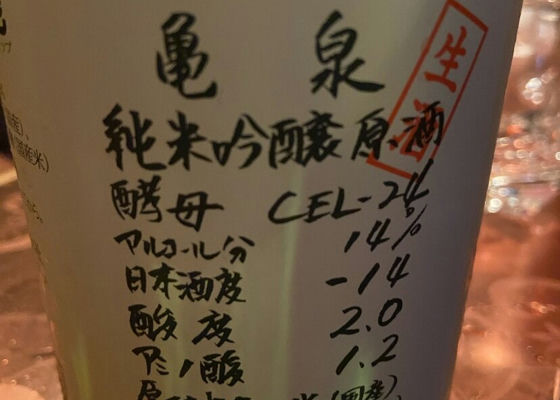 亀泉
生酒
純米吟醸原酒
酵母 CEL-24
アルコール分 14%
日本酒度 -14
酸度 2.0
アミノ酸 1.2